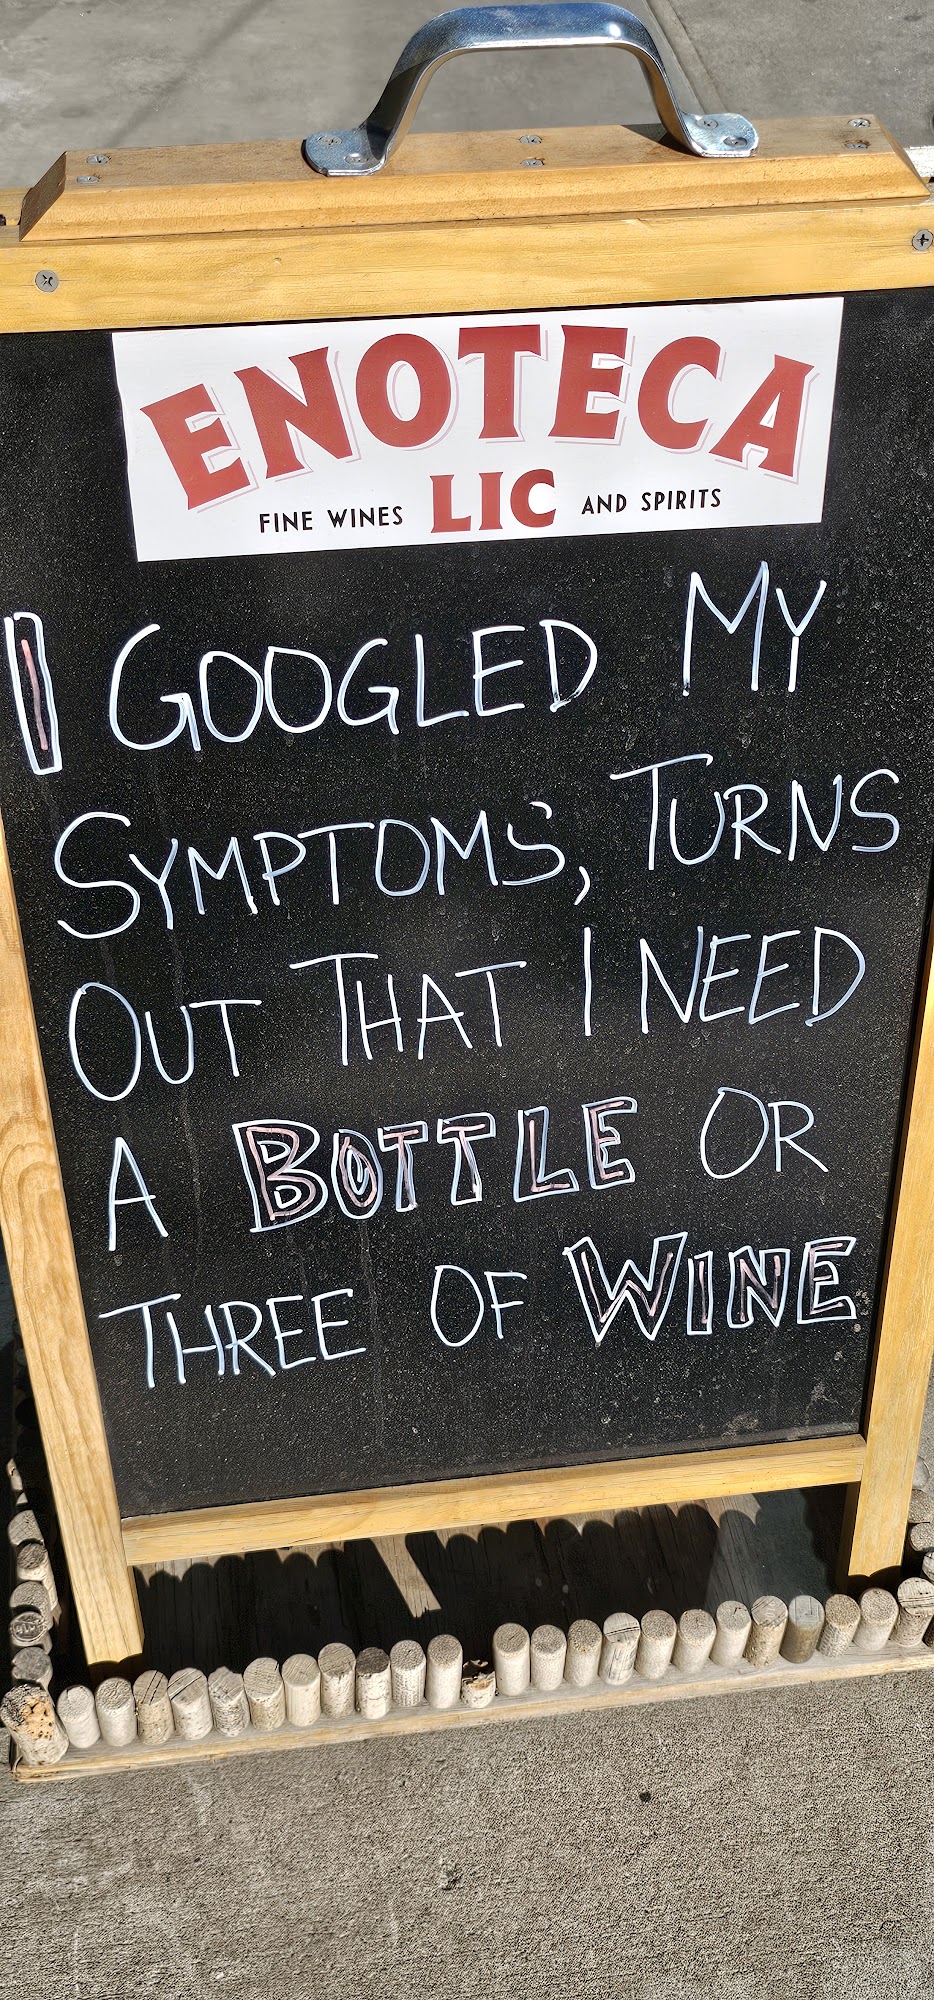 ENOTECA
FINE WINES LIC AND SPIRITS
I GOOGLED MY
SYMPTOMS, TURNS
OUT THAT I NEED
A BOTTLE OR
THREE OF WINE